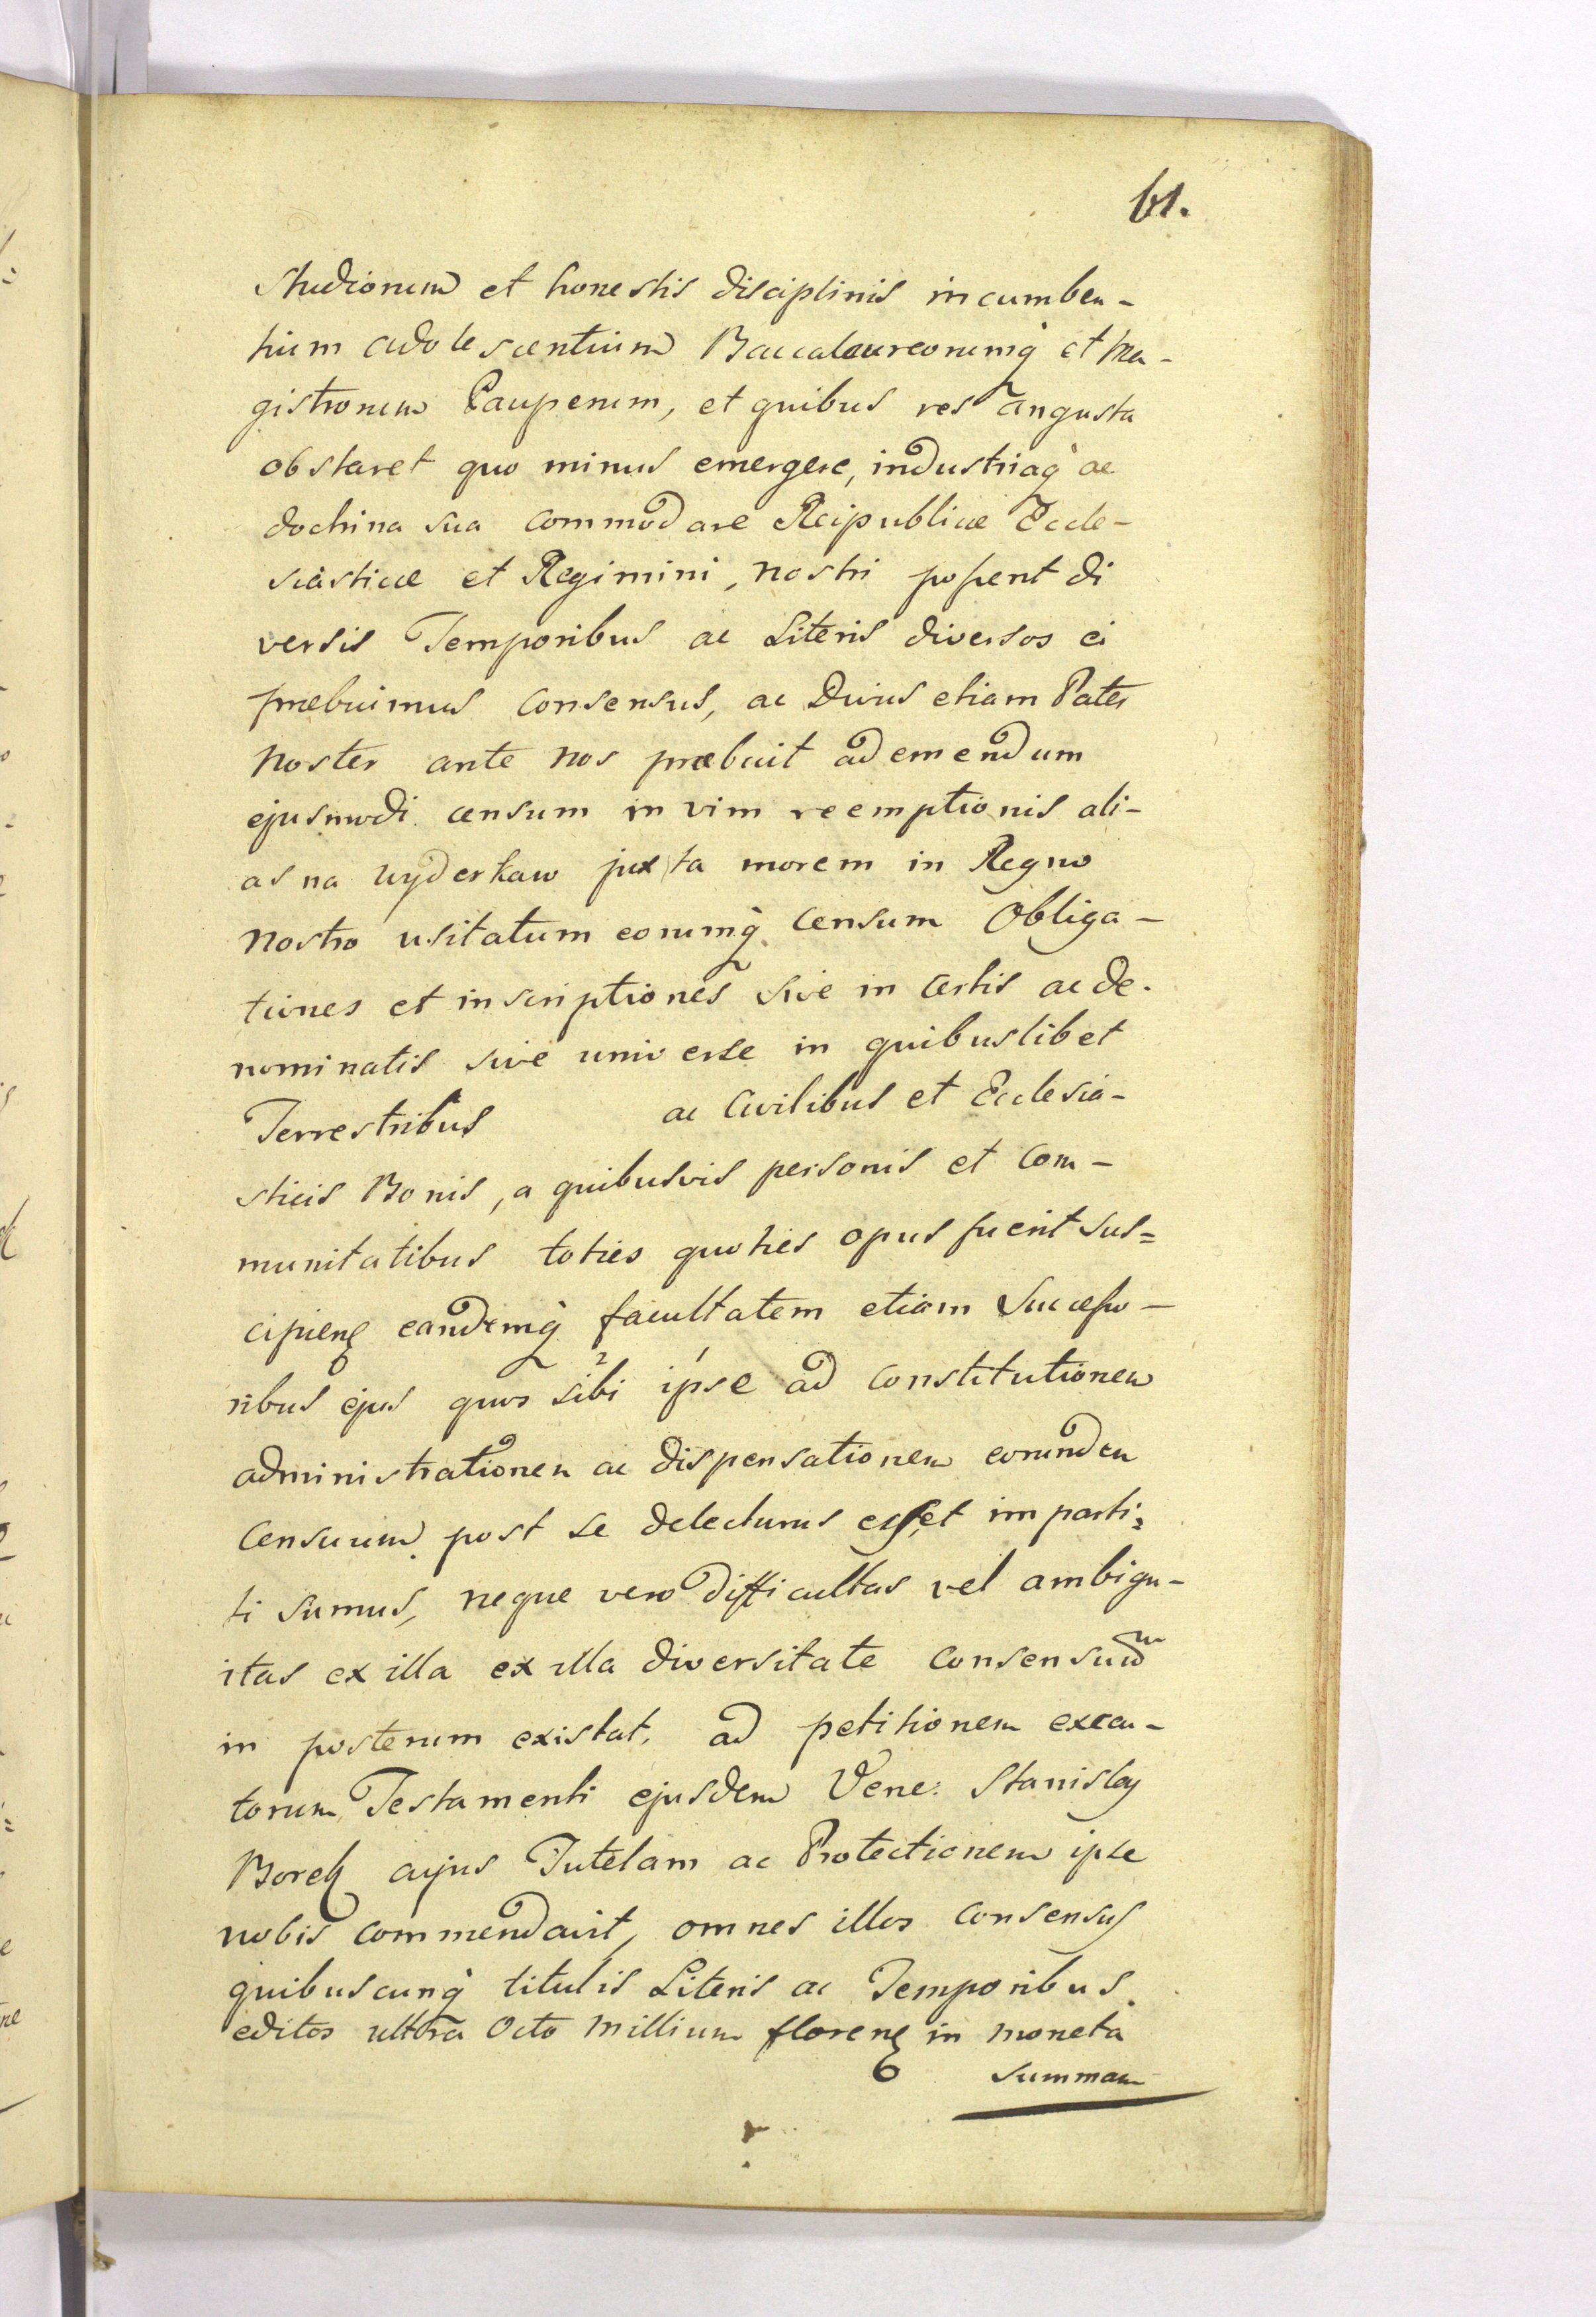 61.
Studiorum et honestis disciplinis incumben-
tium adolescentium Baccalaureorumq̀ et Ma-
gistrorum Pauperum, et quibus res angusta
obstaret quo minus emergere, industriaq̀ ac
doctrina sua commodare Reipublicae Eccle-
siasticae et Regimini, nostri possent di
versis Temporibus ac Literis diversos ei
praebuimus consensus, ac Divus etiam Pater
Noster ante nos praebuit ad emendum
ejusmodi censum in vim reemptionis ali-
as na wyderkaw juxta morem in Regno
Nostro usitatum eorumq̀ censum Obliga-
tiones et inscriptiones sive in certis ac de-
nominatis sive universe in quibuslibet
Terrestribus ac Civilibus et Ecclesia-
sticis Bonis, a quibusvis personis et Com-
munitatibus toties quoties opus fuerit sus=
cipienꝭ eandemq̀ facultatem etiam Successo-
ribus ejus quos sibi 2 ipse 1 ad constitutionem
administrationem ac dispensationem eorundem
Censuum post se delecturus esset imparti=
ti sumus, neque vero difficultas vel ambigu-
itas ex illa ex illa diversitate consensuum
in posterum existat, ad petitionem execu-
torum Testamenti ejusdem Vene: Stanislaj
Borek cujus Tutelam ac Protectionem ipse
nobis commendavit, omnes illos consensus
quibuscunq̀ titulis Literis ac Temporibus
editos ultra Octo Millium florenꝭ in moneta
summam